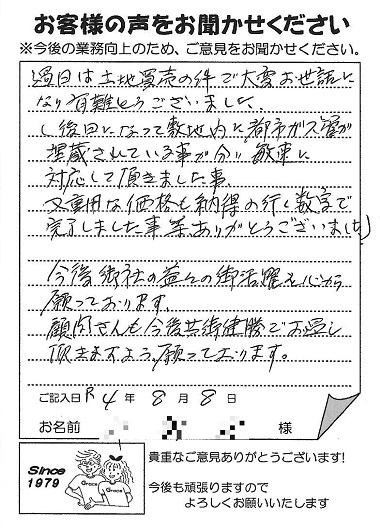 お客様の声をお聞かせください
※今後の業務向上のため、ご意見をお聞かせください。
過日は土地買売の件で大変お世話に
なり有難とうございました。
後日になって敷地内に都市ガス管が
埋蔵されている事が分り敏速に
対応して頂きました事、
又重用な価格も納得の行く数字で
完了しました事等、ありがとうございました
今後御社の益々の御活躍を心から
願っております。
顧問さんも今後共御健勝でお過し
頂きますよう、願っております。
ご記入日 R4年 8月 8日
お名前 様
Since
1979
Grace
Grace
貴重なご意見ありがとうございます!
今後も頑張りますので
よろしくお願いいたします